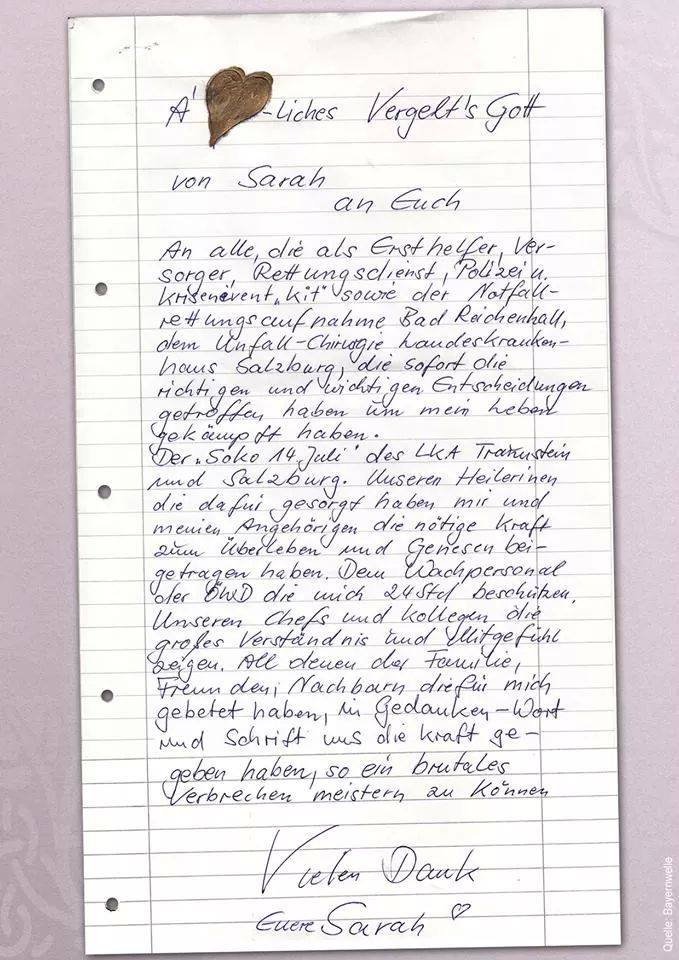 A' -liches Vergelt's Gott
von Sarah
an Euch
An alle, die als Ersthelfer, Ver-
sorger, Rettungsdienst, Polizei u.
Krisenevent "Kit" sowie der Notfall-
rettungsaufnahme Bad Reichenhall,
dem Unfall-Chirugie Landeskranken-
haus Salzburg, die sofort die
richtigen und wichtigen Entscheidungen
getroffen haben um mein Leben
gekämpft haben.
Der "Soko 14. Juli" des LKA Traunstein
und Salzburg. Unseren Heilerinen
die dafür gesorgt haben mir und
meinen Angehörigen die nötige Kraft
zum Überleben und Genesen bei-
getragen haben. Dem Wachpersonal
der ÖWD die mich 24Std beschützen.
Unseren Chefs und Kollegen die
großes Verständnis und Mitgefühl
zeigen. All denen der Familie,
Freunden, Nachbarn die für mich
gebetet haben, in Gedanken-Wort
und Schrift uns die Kraft ge-
geben haben, so ein brutales
Verbrechen meistern zu können
Vielen Dank
Euere Sarah ♡
Quelle: Bayernwelle